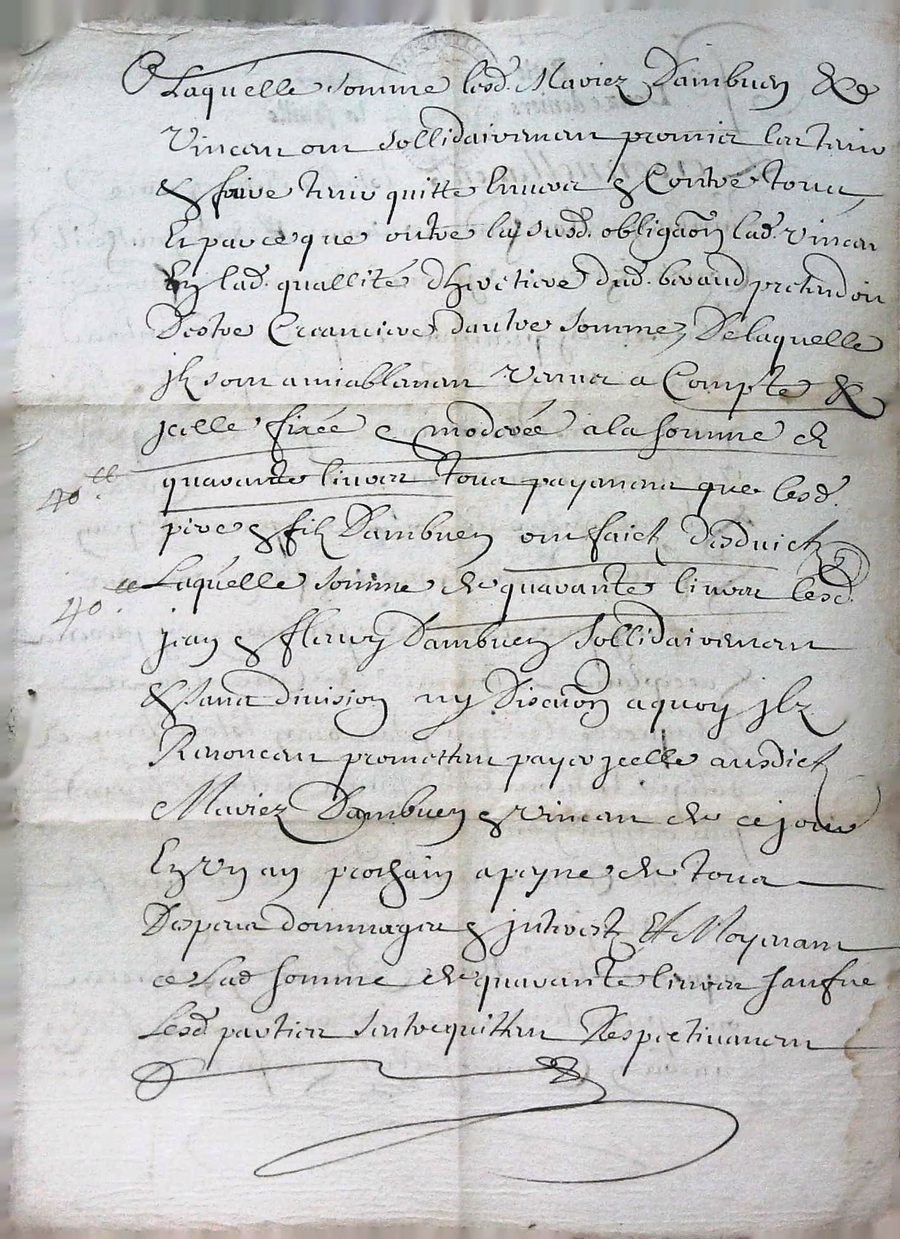 Laquelle somme lesd. Mariez Dambuen &
Vincan ont sollidaireman promier
& faire quitte envers & contre tous
Et parce que outre la susd. obligaõn lad. vincan
En lad. quallité dhretiere dud. beraud pretendoit
Destre Creanciere dautre somme, De laquelle
jlz sont amiableman venus a Compte &
jcelle fixée & moderée a la somme de
40ll quarante livres tous payemens que lesd.
pere & filz Dambuen ont faict desduictz
40ll Laquelle somme de quarante livres lesd.
jean & fleury Dambuen sollidaireman
& sans division ny Discuõn a quoy jlz
Renoncan prometten payer jcelle ausdictz
Mariez Dambuen & vincan de ce jour
En Un an prochain a peyne de tous
Despens dommages & jnterestz Et Moyenant
ce lad somme de quarante livres sauf ne
Lesd parties sentrequitten Respectivemen